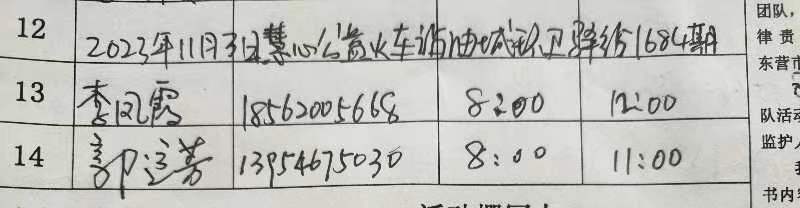 12 2023年11月3日慧心公益火车站油城环卫驿站1684期
13 李凤霞 18562005668 8:00 12:00
14 郭连芳 13954675030 8:00 11:00
团队,
律 贵
东营市
队活动
监护人
书内容